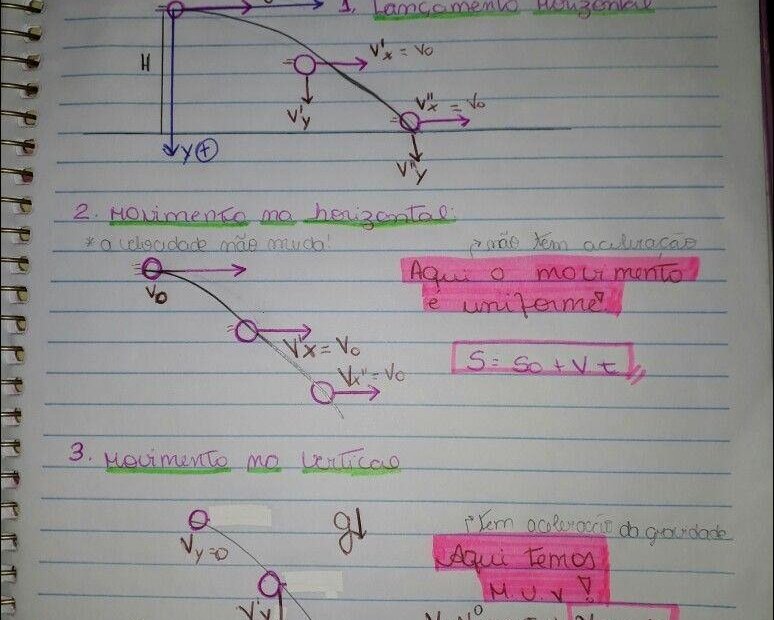 1. Lançamento Horizontal
H
V'x = V0
V'y
V"x = V0
y +
V"y
2. Movimento na horizontal:
* a velocidade não muda!
não tem aceleração
Aqui o movimento
é uniforme!
V0
V'x = V0
Vx" = V0
S = So + V t
3. Movimento na vertical
g↓
tem aceleração da gravidade
Vy=0
Aqui temos
M.U.V!
V'y